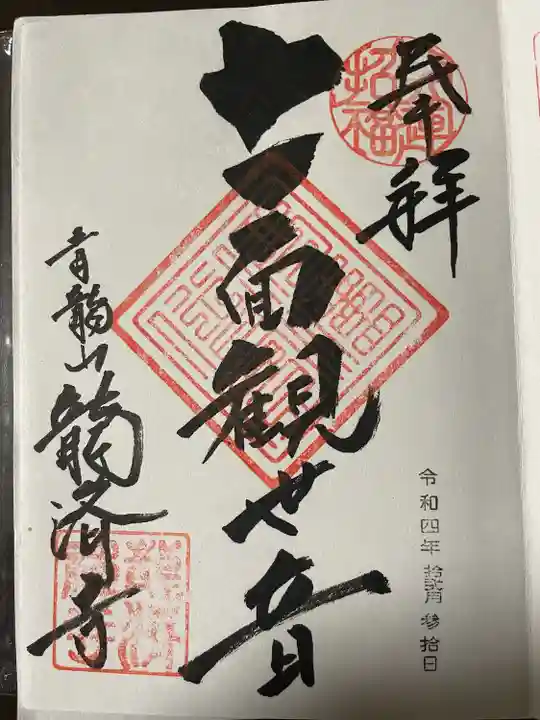 奉拝
開運
招福
令和四年 拾弐月 参拾日
十一面観世音
青龍山
龍済寺